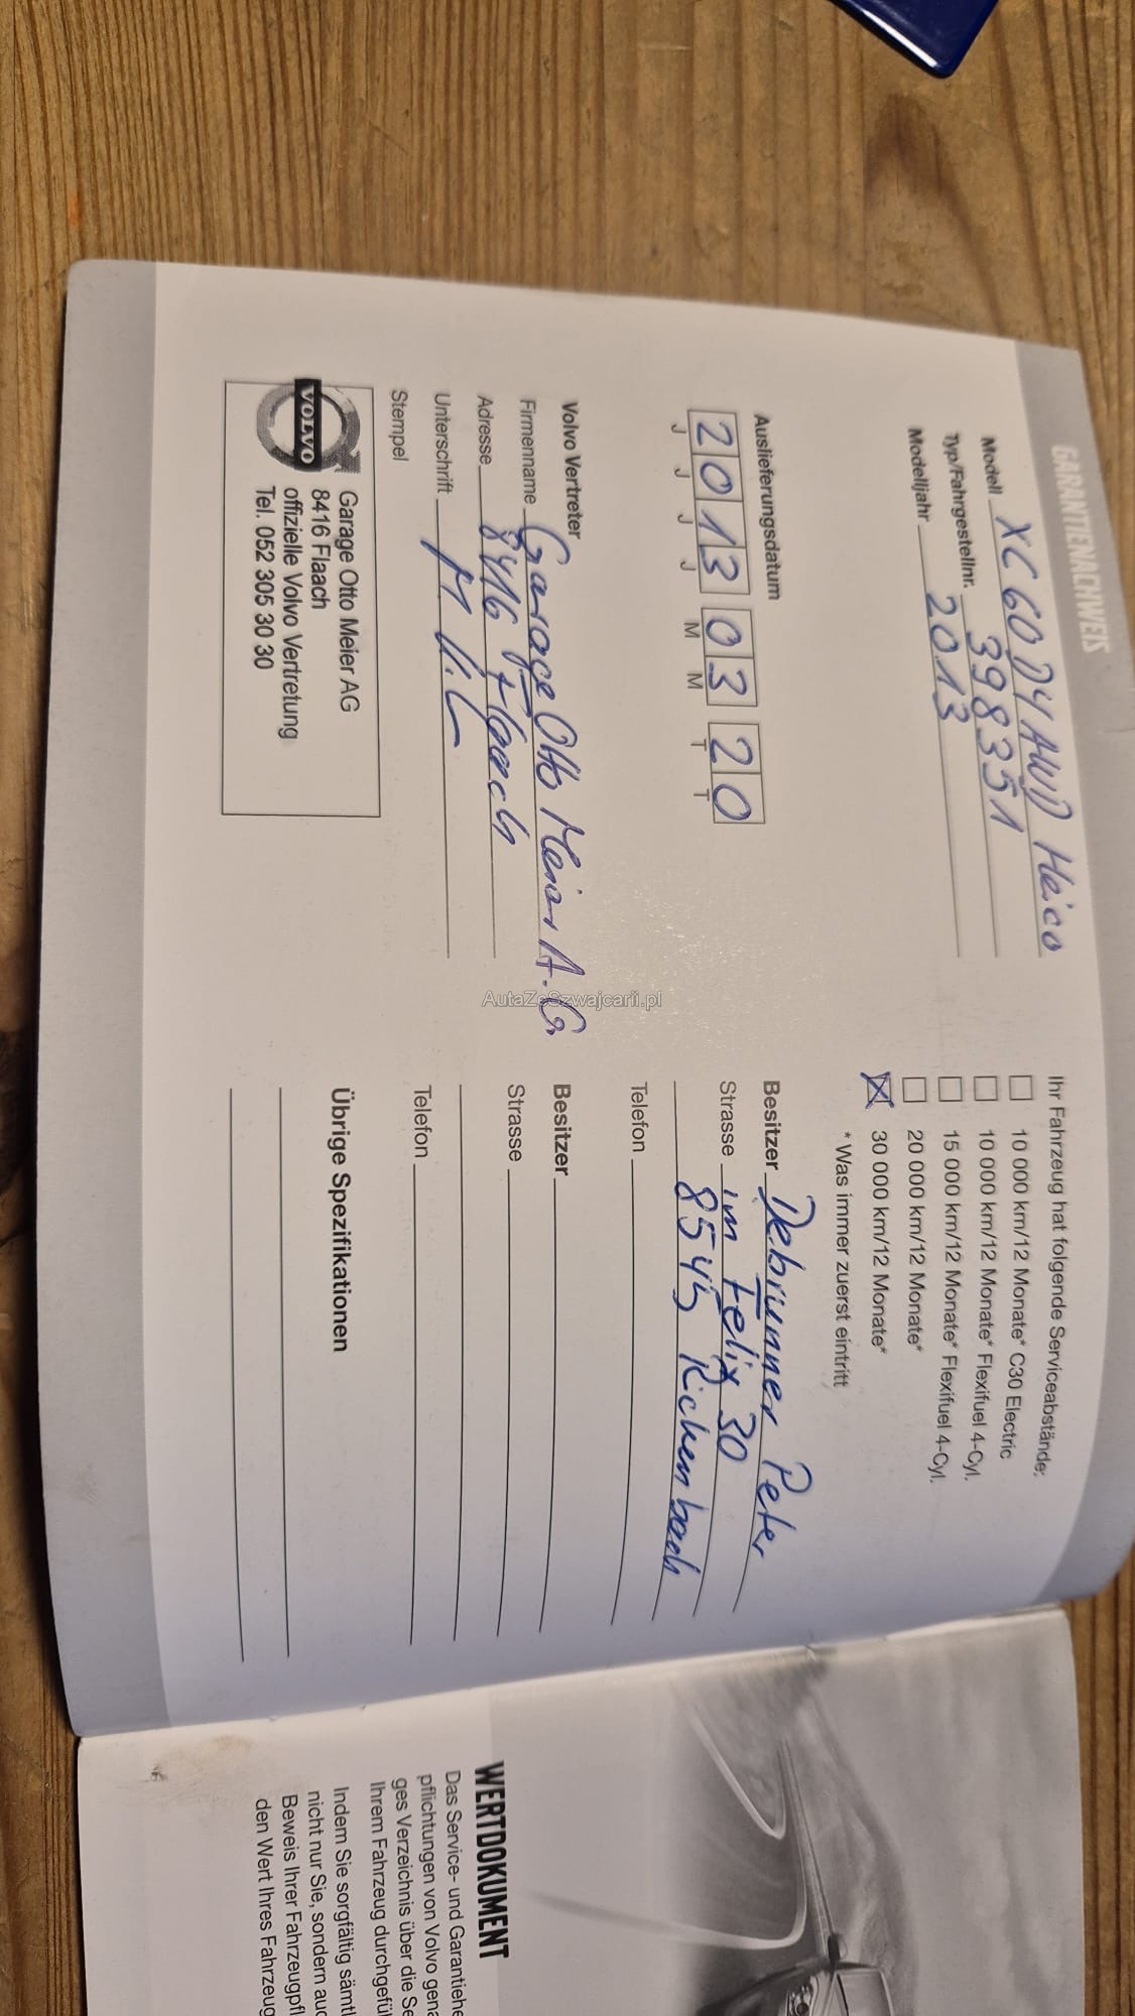 GARANTIENACHWEIS
Modell XC60 D4 AWD Heico
Typ/Fahrgestellnr. 398351
Modelljahr 2013
Auslieferungsdatum
2013 03 20
J J J J M M T T
Volvo Vertreter
Firmenname Garage Otto Meier A.G
Adresse 8416 Flaach
Unterschrift
Stempel
VOLVO
Garage Otto Meier AG
8416 Flaach
offizielle Volvo Vertretung
Tel. 052 305 30 30
Ihr Fahrzeug hat folgende Serviceabstände:
10 000 km/12 Monate* C30 Electric
10 000 km/12 Monate* Flexifuel 4-Cyl.
15 000 km/12 Monate* Flexifuel 4-Cyl.
20 000 km/12 Monate*
30 000 km/12 Monate*
* Was immer zuerst eintritt
Besitzer Debrunner Peter
Strasse im Felix 30
8545 Rickenbach
Telefon
Besitzer
Strasse
Telefon
Übrige Spezifikationen
AutaZeSzwajcarii.pl
WERTDOKUMENT
Das Service- und Garantiehe
pflichtungen von Volvo gena
ges Verzeichnis über die Se
Ihrem Fahrzeug durchgefüh
Indem Sie sorgfältig sämtl
nicht nur Sie, sondern auc
Beweis Ihrer Fahrzeugpfl
den Wert Ihres Fahrzeug